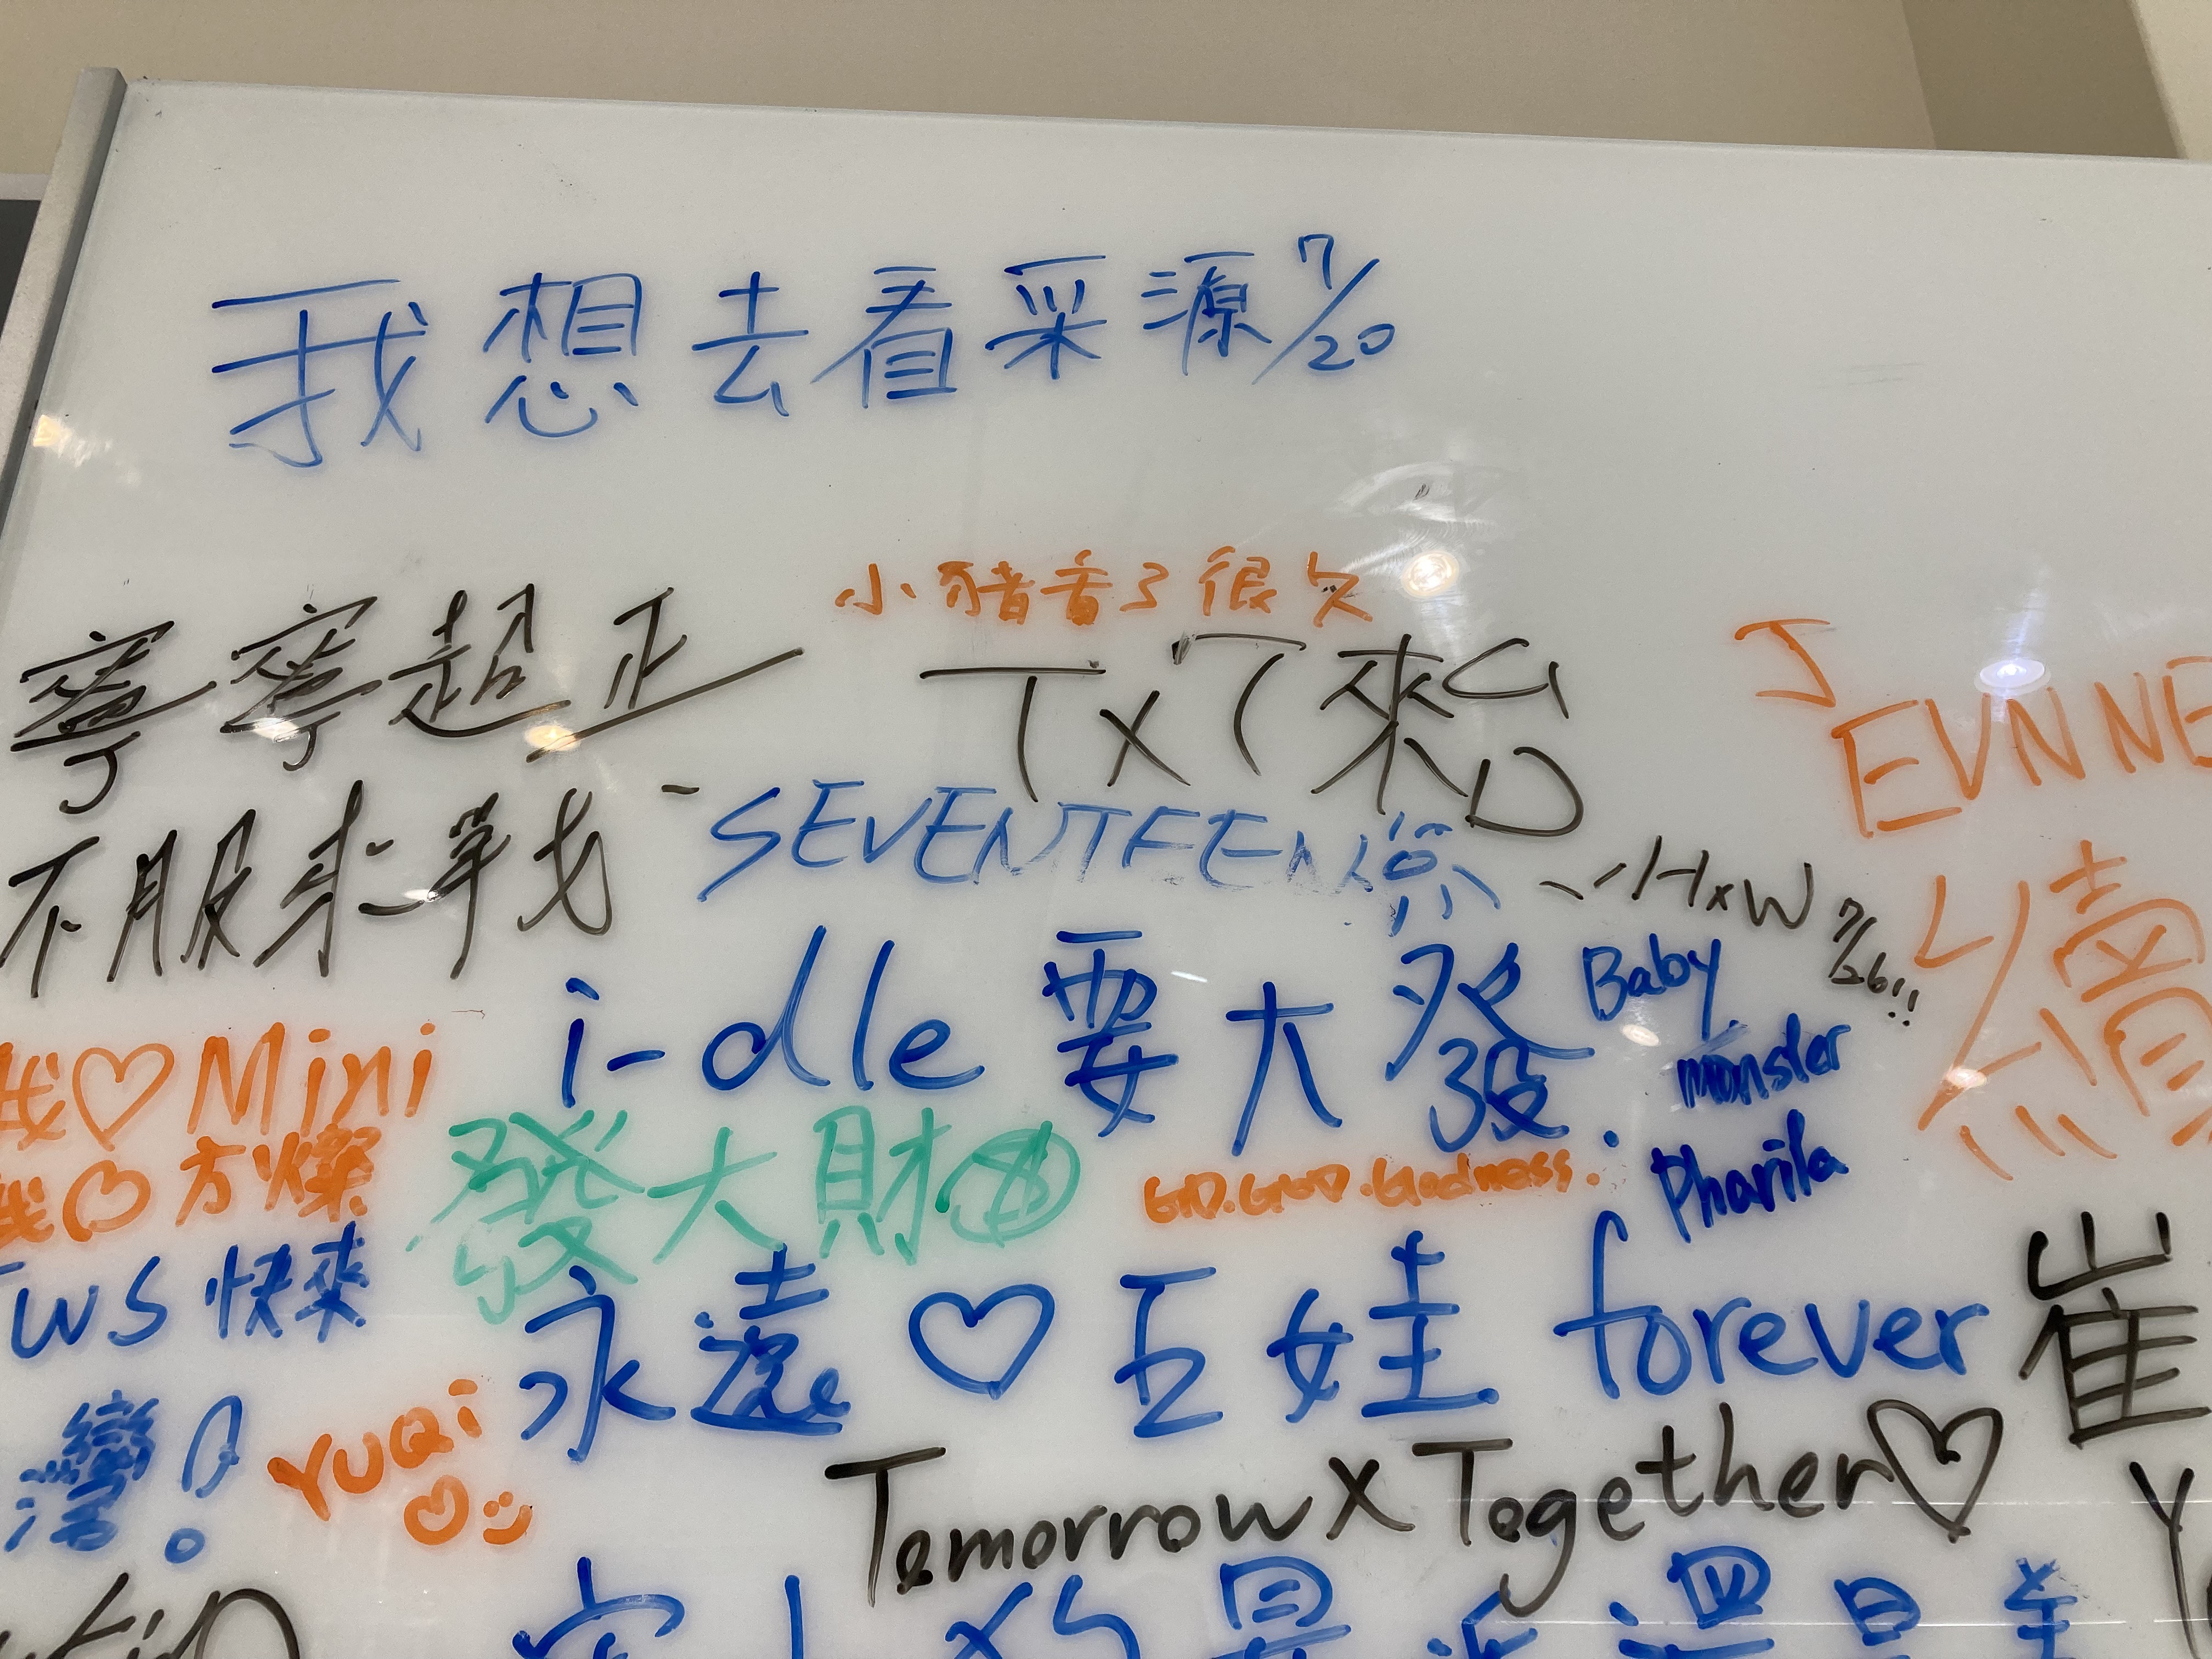 我想去看采源7/20
小豬看了很久
寧寧超正
TXT來台
J
EVNNE
不服來戰
SEVENTEEN
HxW 7/26!!
續
i-dle要大發.
Baby
monster
Pharita
我♡Mini
我♡方燦
發大財
GD.GOD.Godness.
TWS快來
灣!
永遠♡五娃 forever
崔
YUQi
Tomorrow X Together♡